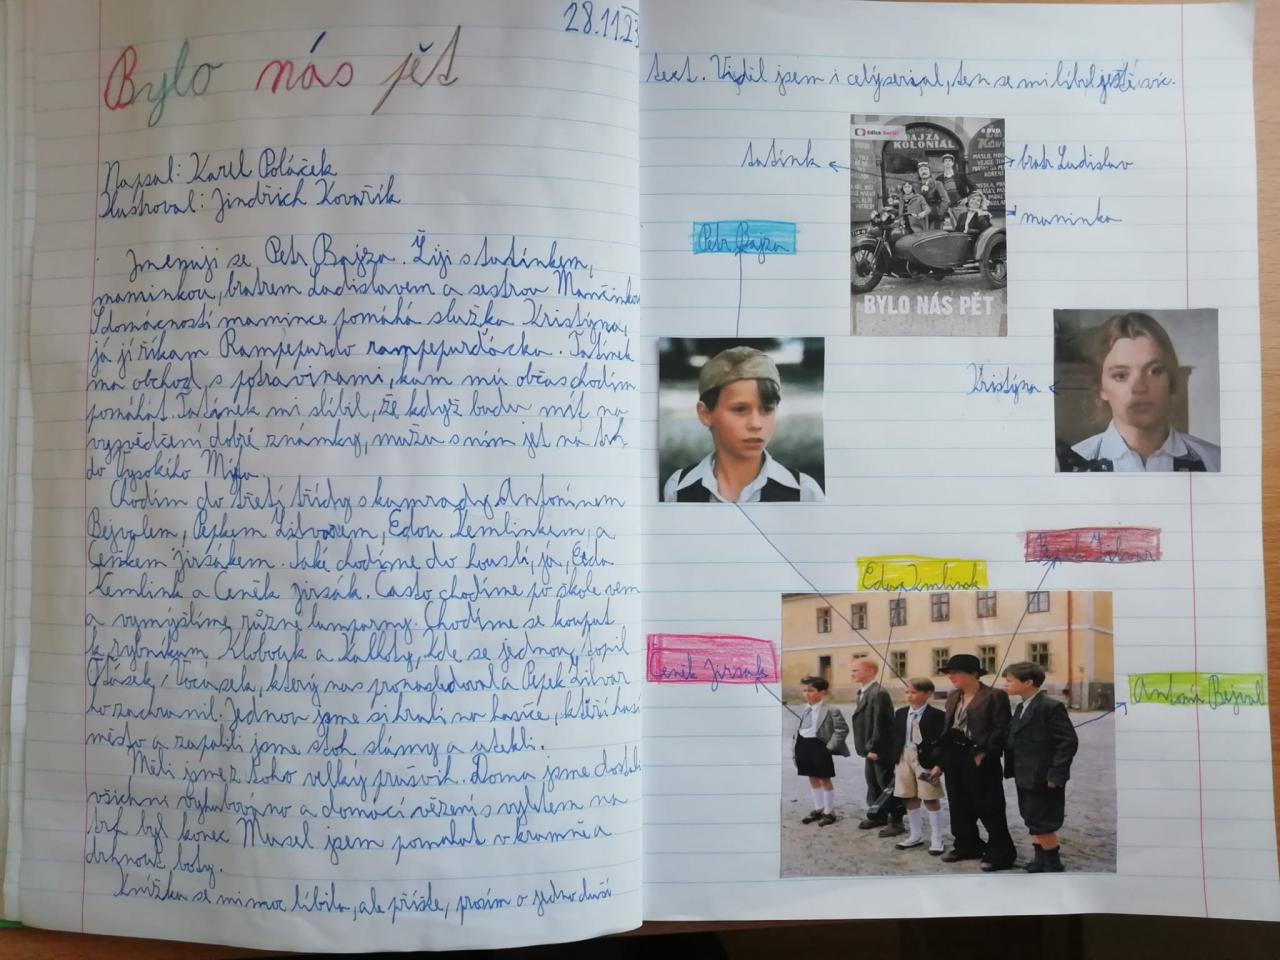 28.11.23
Bylo nás pět
Napsal: Karel Poláček
Ilustroval: Jindřich Kovařík
Jmenuji se Petr Bajza. Žiji s tatínkem,
maminkou, bratrem Ladislavem a sestrou Mančinkou
S domácností mamince pomáhá služka Kristýna,
já jí říkam Rampepurdo rampepurďácka. Tatínek
má obchod s potravinami, kam mu občas chodím
pomáhat. Tatínek mi slíbil, že když budu mít na
vysvědčení dobré známky, mužu s ním jet na trh
do Vysokího Míta.
Chodím do třetí třídy s kamrady Antonínem
Bejvalem, Pepkem Zilvarem, Edou Kemlinkem, a
Čenkem Jirsákem. Také chodíme do houslí, já, Eda
Kemlink a Čeněk Jirsák. Často chodíme po škole ven
a vymýšlíme různé lumparny. Chodíme se koupat
k rybníkum Klobouk a Kalhoty, kde se jednou topil
Otásek Vocásek, který nas pronasledoval a Pepek Zilvar
ho zachranil. Jednou jsme si hrali na hasiče, kteří hasí
město a zapalili jsme stoh slámy a utekli.
Měli jsme z toho velký prušvih. Doma jsme dostali
všichni vyhubováno a domací vězení s vyletem na
trh byl konec Musel jsem pomahat v kramně a
drhnout boty.
Knížka se mi moc líbila, ale příšte, prosím o jednodušší
text. Viděl jsem i celý serial, ten se mi líbil ještě víc.
tatínk
bratr Ladislav
maminka
Edice
BAJZA
KOLONIÁL
BYLO NÁS PĚT
Petr Bajza
Kristýna
Pepek Zilvar
Eda Kemlinek
Čeněk Jirsak
Antoní Bejval